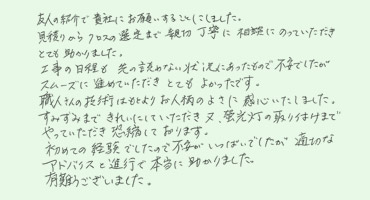 友人の紹介で貴社にお願いすることにしました。
見積りからクロスの選定まで親切丁寧に相談にのっていただき
とても助かりました。
工事の日程も先の読めない状況にあったもので不安でしたが
スムーズに進めていただきとてもよかったです。
職人さんの技術はもとよりお人柄のよさに感心いたしました。
すみずみまできれいにしていただき又、蛍光灯の取り付けまで
やっていただき恐縮しております。
初めての経験でしたので不安がいっぱいでしたが適切な
アドバイスと進行で本当に助かりました。
有難うございました。